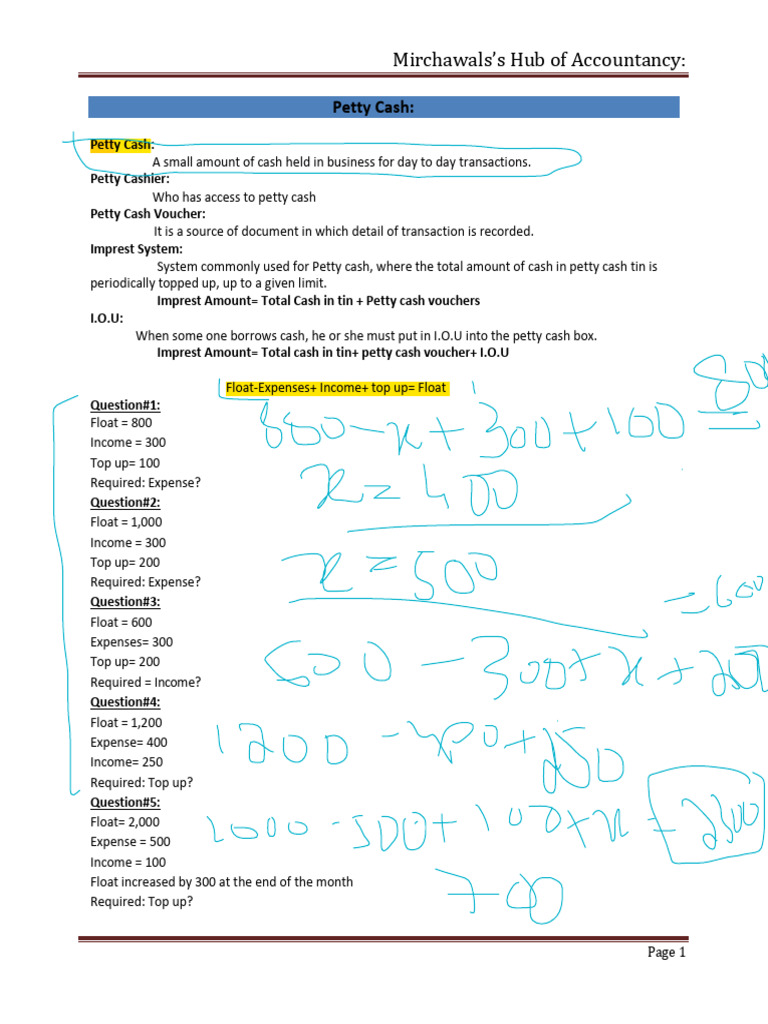 Mirchawals’s Hub of Accountancy:
Petty Cash:
Petty Cash:
A small amount of cash held in business for day to day transactions.
Petty Cashier:
Who has access to petty cash
Petty Cash Voucher:
It is a source of document in which detail of transaction is recorded.
Imprest System:
System commonly used for Petty cash, where the total amount of cash in petty cash tin is
periodically topped up, up to a given limit.
Imprest Amount= Total Cash in tin + Petty cash vouchers
I.O.U:
When some one borrows cash, he or she must put in I.O.U into the petty cash box.
Imprest Amount= Total cash in tin+ petty cash voucher+ I.O.U
Float-Expenses+ Income+ top up= Float
Question#1:
Float = 800
Income = 300
Top up= 100
Required: Expense?
800 - x + 300 + 100 800
x = 400
Question#2:
Float = 1,000
Income = 300
Top up= 200
Required: Expense?
x = 500
Question#3:
Float = 600
Expenses= 300
Top up= 200
Required = Income?
600 - 300 + x + 200 = 600
Question#4:
Float = 1,200
Expense= 400
Income= 250
Required: Top up?
1200 - 400 + 250
Question#5:
Float= 2,000
Expense = 500
Income = 100
Float increased by 300 at the end of the month
Required: Top up?
500 + 100 + x = 2300
700
Page 1